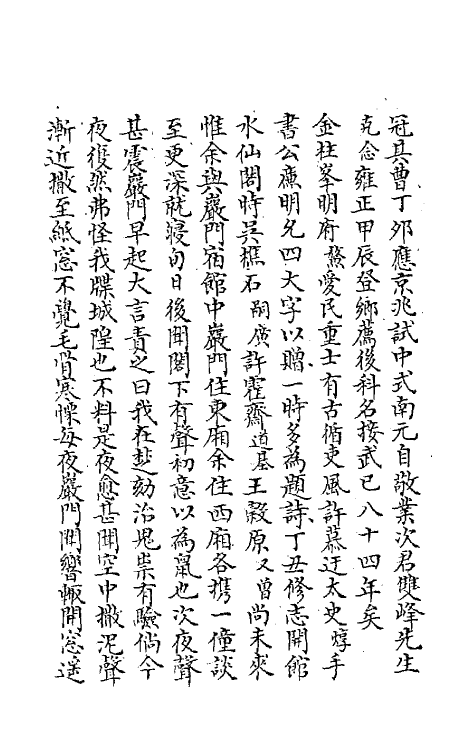 冠其曹丁卯應京兆試中式南元自敬業次君雙峰先生
克念雍正甲辰登鄉薦後科名接武已八十四年矣
金桂峯明府鰲愛民重士有古循吏風許慕迂太史焞手
書公廉明允四大字以贈一時多為題詩丁丑修志開館
水仙閣時吳樵石嗣廣許霍齋道基王穀原又曾尚未來
惟余與嚴門宿館中嚴門住東廂余住西廂各攜一僮談
至更深就寢旬日後聞閣下有聲初意以為鼠也次夜聲
甚震嚴門早起大言責之曰我在越劾治鬼祟有驗倘今
夜復然弗怪我牒城隍也不料是夜愈甚聞空中撒泥聲
漸近撒至紙窓不覺毛骨寒慄每夜嚴門聞響輙開窓遙